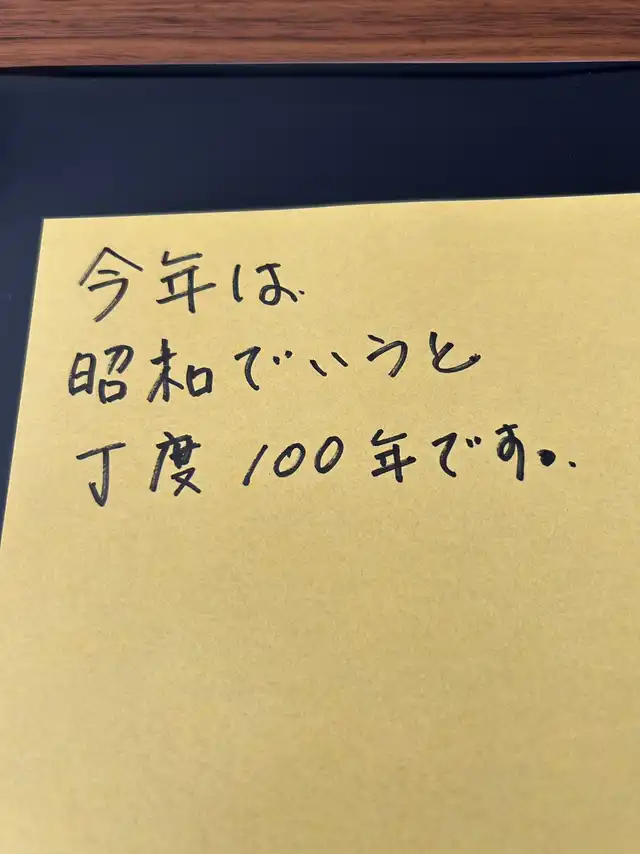 今年は
昭和でいうと
丁度100年です。